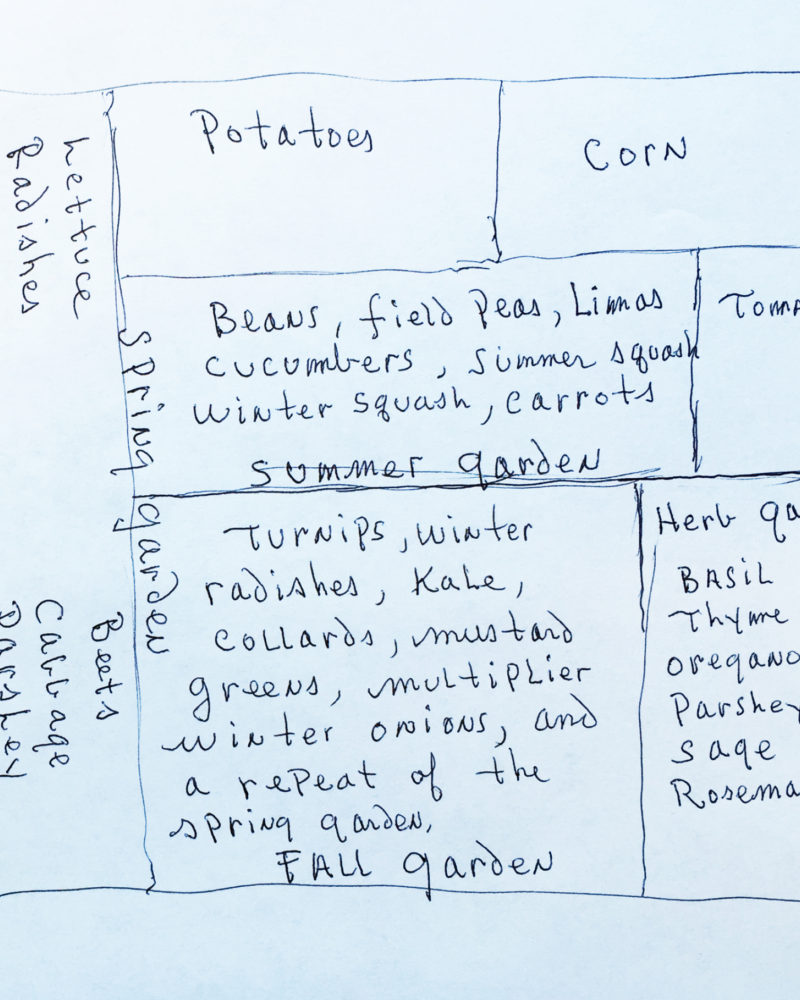 Lettuce
Radishes
Spring garden
Beets
Cabbage
Parsley
Potatoes
Corn
Beans, field Peas, Limas
cucumbers, summer squash
winter squash, carrots
summer garden
Toma
Turnips, winter
radishes, Kale,
Collards, mustard
greens, multiplier
winter onions, and
a repeat of the
spring garden,
FALL garden
Herb ga
BASIL
Thyme
oregano
Parsley
sage
Rosema